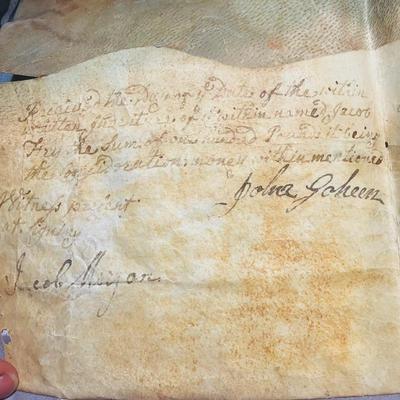 Received the day and Date of the within
written Indenture of ye within named Jacob
Fry the Sum of one hundred Pounds it being
the Consideration money within mentioned
John Goheen
Witness present
at Signing
Jacob